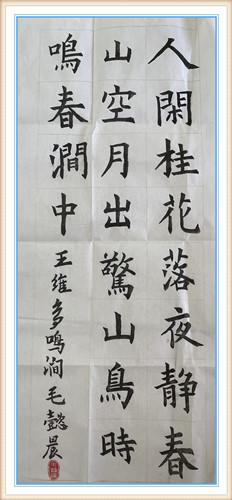 人閑桂花落夜静春
山空月出驚山鳥時
鳴春澗中
王维多鸣涧毛懿晨